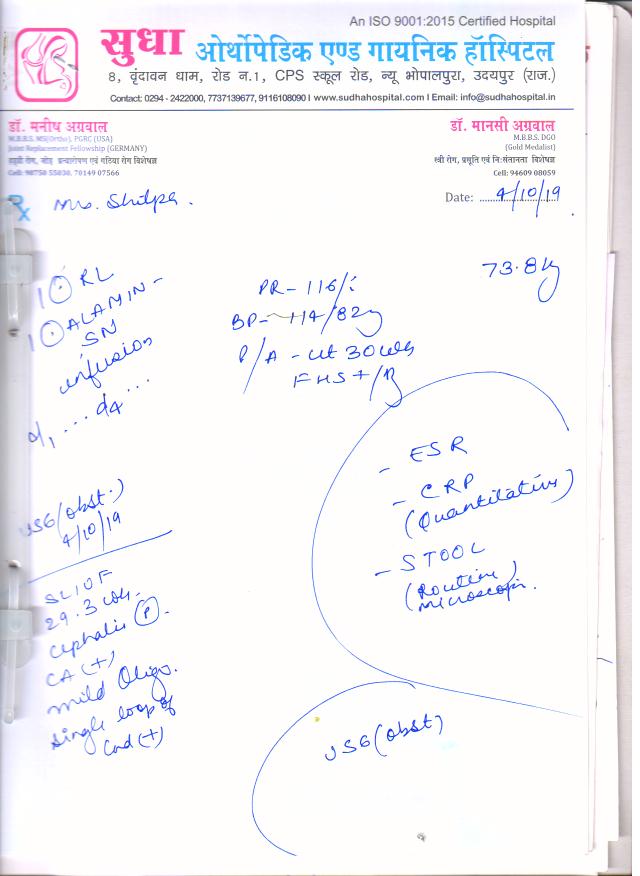 An ISO 9001:2015 Certified Hospital
सुधा ओर्थोपेडिक एण्ड गायनिक हॉस्पिटल
8, वृंदावन धाम, रोड न.1, CPS स्कूल रोड, न्यू भोपालपुरा, उदयपुर (राज.)
Contact: 0294 - 2422000, 7737139677, 9116108090 I www.sudhahospital.com I Email: info@sudhahospital.in
डॉ. मनीष अग्रवाल
M.B.B.S. MS(Ortho), PGRC (USA)
Joint Replacement Fellowship (GERMANY)
हड्डी रोग, जोड़ प्रत्यारोपण एवं गठिया रोग विशेषज्ञ
Cell: 98750 55030, 70149 07566
डॉ. मानसी अग्रवाल
M.B.B.S. DGO
(Gold Medalist)
स्त्री रोग, प्रसूति एवं निःसंतानता विशेषज्ञ
Cell: 94609 08059
Rx Mrs. Shilpa.
Date: 4/10/19
73.8 kg
1 RL
1 ALAMIN-
SN
infusion
d1 ... d4 ...
PR- 116/
BP- 114/82
P/A - ut 30 wks
FHS +/R
- ESR
- CRP
(Quantitative)
- STOOL
(Routine/
microscopi.
USG (obst.)
4/10/19
SLIUF
29.3 wks.
Cephalic P.
CA (+)
mild Oligo.
single loop of
Cord (+)
USG (obst)